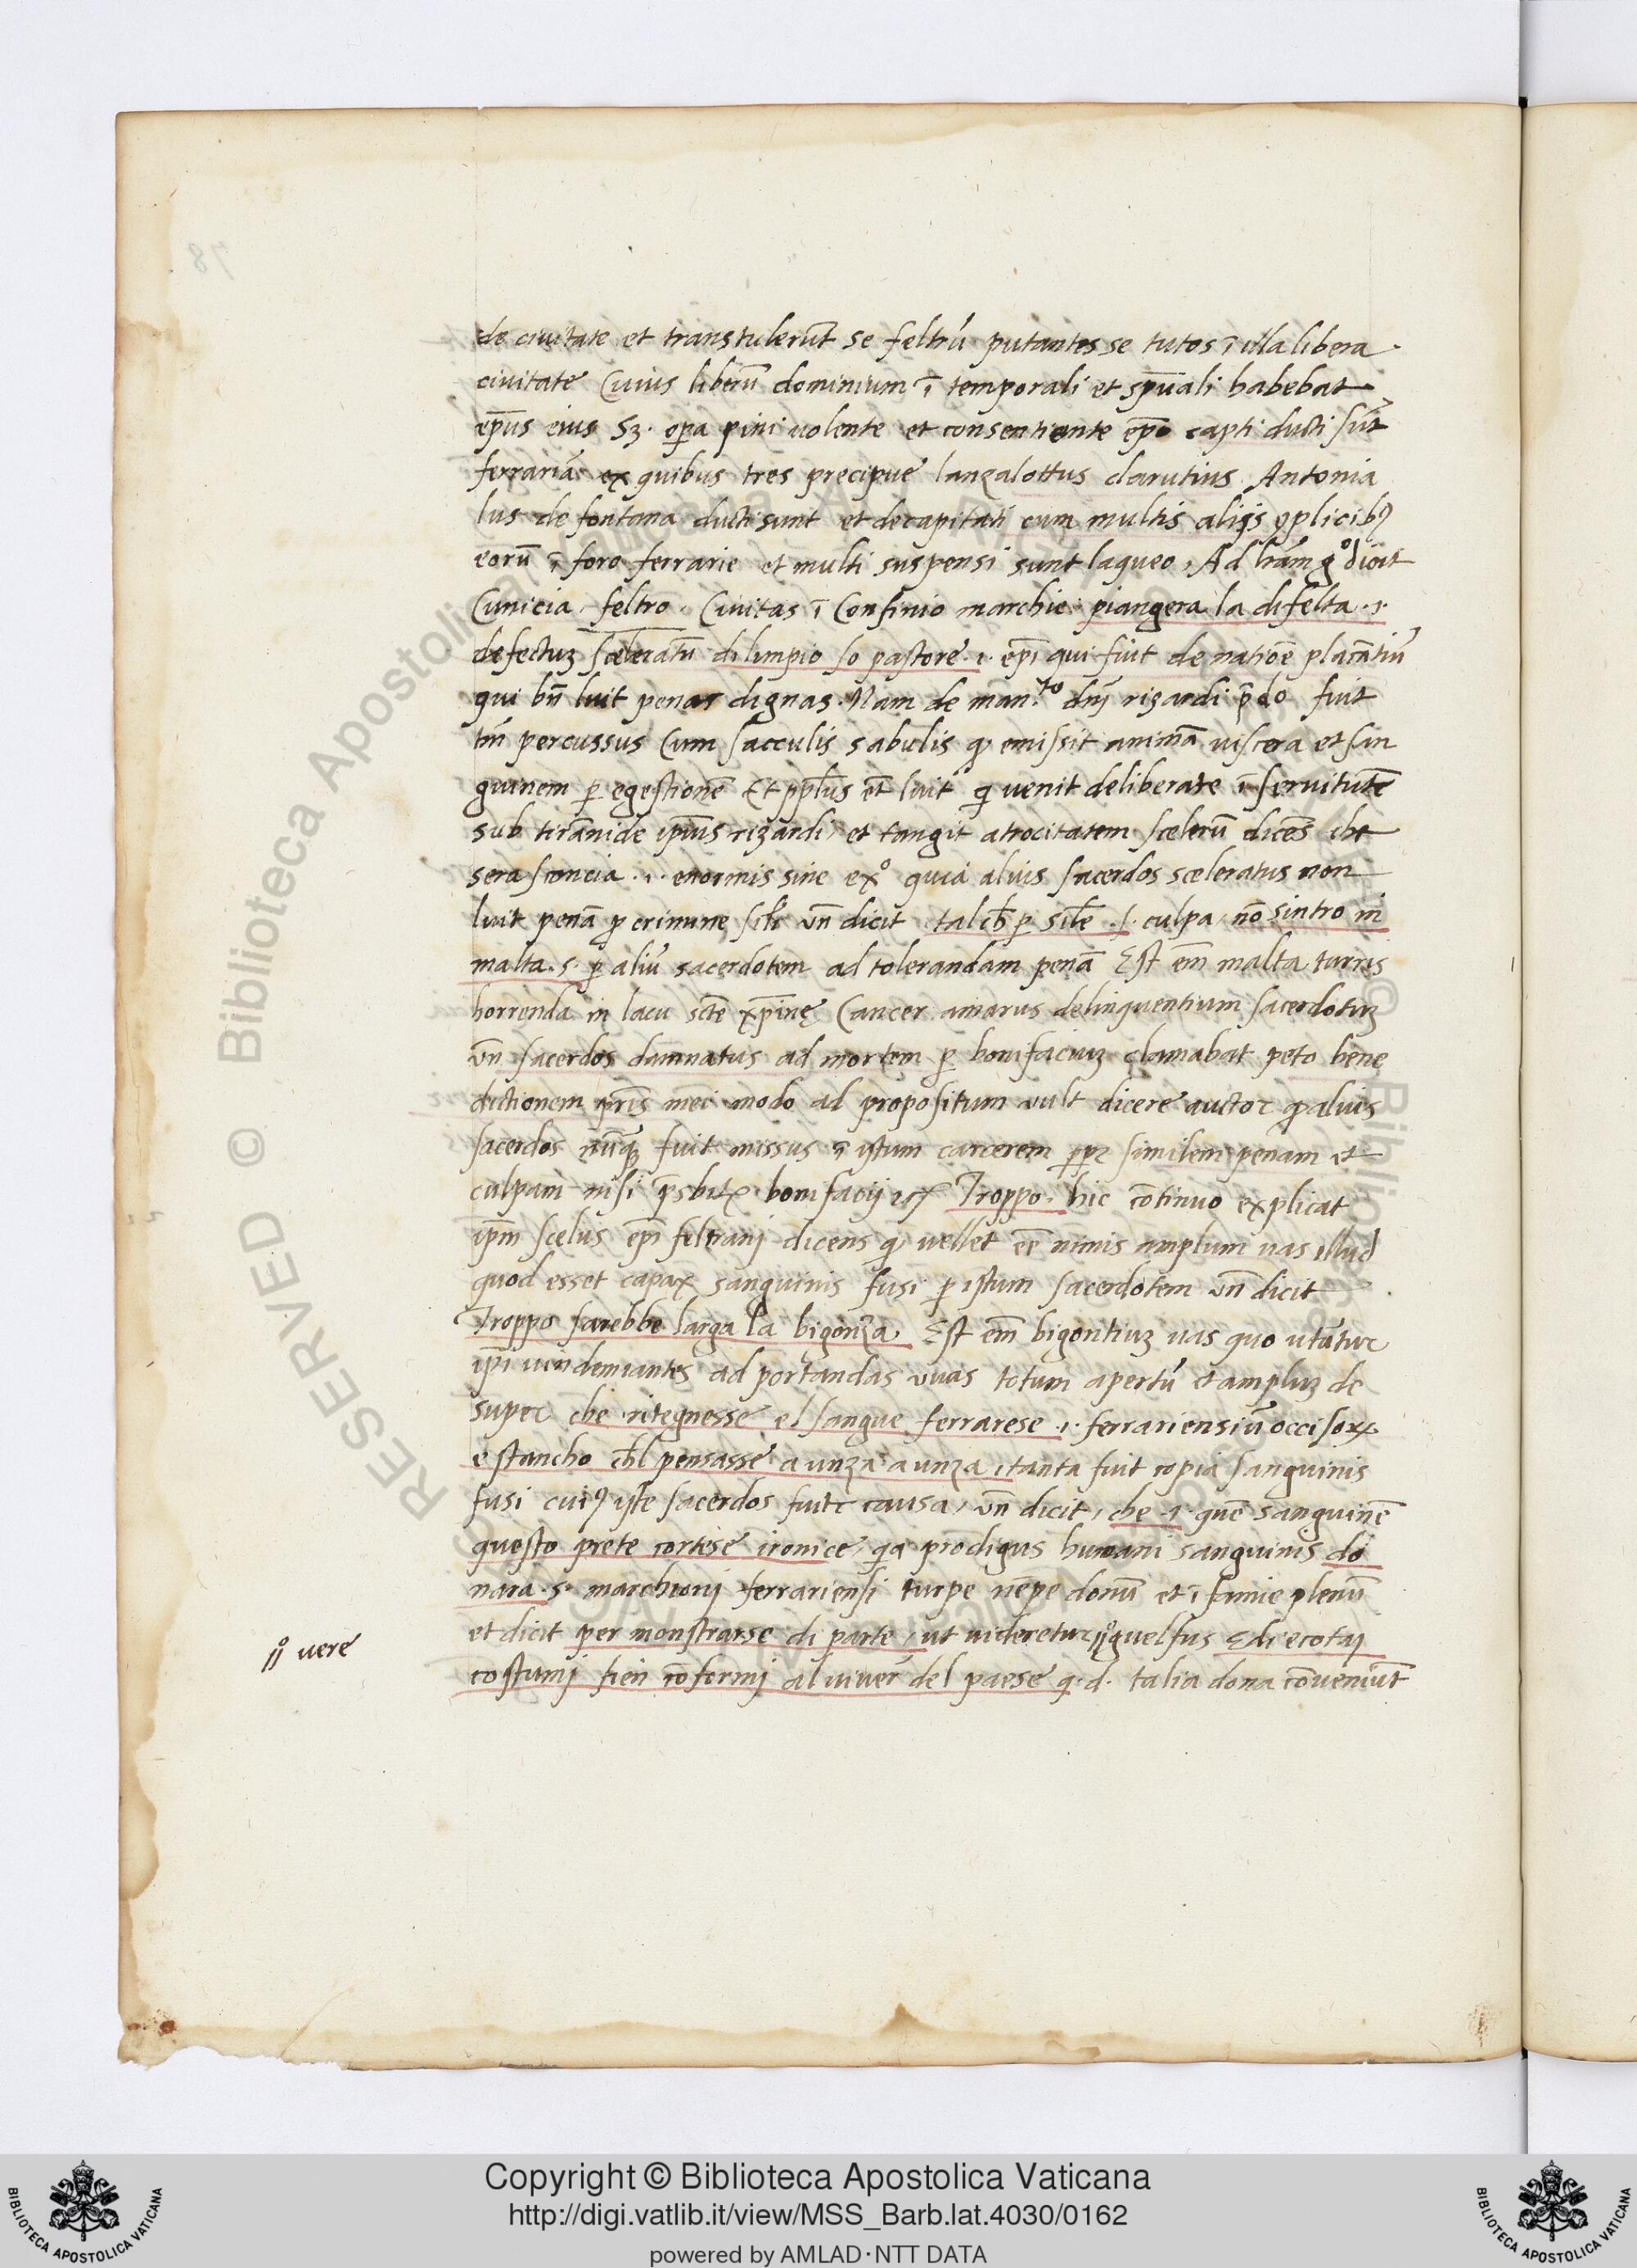 de ciuitate et transtulerūt se feltrū putantes se tutos ī illa libera
ciuitate Cuius liberū dominium ī temporali et sp̄uali habebat
ep̄us eius Sz. opa pini uolente et consentiente ep̄o capti ducti sūt
ferrariā ex quibus tres precipue lanzalottus clarutius Antonia
lus de fontana ducti sunt et decapitati cum multis alijs ꝯplicibꝫ
eorū ī foro ferrarie et multi suspensi sunt laqueo, Ad lr̄am gº dicit
Cunicia feltro. Ciuitas ī Confinio marchie piangera la difelta .i.
defectuz sceleratū di limpio so pastore .i. ep̄i qui fuit de natiōe placātiū
qui bn̄ luit penas dignas. Nam de man.to dn̄j rizardi p̄do fuit
tm̄ percussus Cum sacculis sabulis ꝙ emissit animā uiscera et san
guinem ꝑ egestionē Et pp̄lus et̄ luit q̄ uenit deliberate ī seruitutē
sub tirānide ip̄ius rizardi, et tangit atrocitatem scelerū dicēs che
sera sconcia .i. enormis sine exº quia alius sacerdos sceleratus non
luit penā ꝓ crimine sil̄i vn̄ dicit tal cħ ꝑ sil̄e .s. culpa nō sintro in
malta .s. ꝑ aliū sacerdotem ad tolerandam penā Est em̄ malta turris
horrenda in lacu sc̄te xp̄inę Carcer amarus delinquentium sacerdotuz
vn̄ sacerdos damnatus ad mortem ꝑ bonifaciuz clamabat peto bene
dictionem pr̄is mei modo ad propositum uult dicere auctor ꝙ alius
sacerdos nūꝗ fuit missus ī ystum carcerem ꝓpr similem penam et
culpam nisi p̄sbitꝝ bonifacij rꝭ Troppo. hic cōtinuo explicat
ip̄m scelus ep̄i feltranj dicens ꝙ uellet eē nimis amplum uas illud
quod esset capax sanguinis fusi ꝑ istum sacerdotem vn̄ dicit
Troppo sarebbe larga la bigonza. Est em̄ bigontiuz uas quo utātur
ip̄i uindemiantes ad portandas vuas totum apertū et ampluz de
super che ritegnesse el sangue ferrarese .i. ferrariensiū occisoꝝ
e stancho cħl pensasse a unza a unza, tanta fuit copia sanguinis
fusi cuiꝰ yste sacerdos fuit causa, vn̄ dicit, che .i. quē sanguinē
questo prete cortese ironice qa prodigus humani sanguinis do
nara .s. marchionj ferrariensi turpe nēpe donū et īfamie plenū
et dicit per monstrarse di parte, ut uideretur guelfus E di ecotaj
vere
costumj fien cōformj al viuer del paese q.d. talia dona cōueniūt